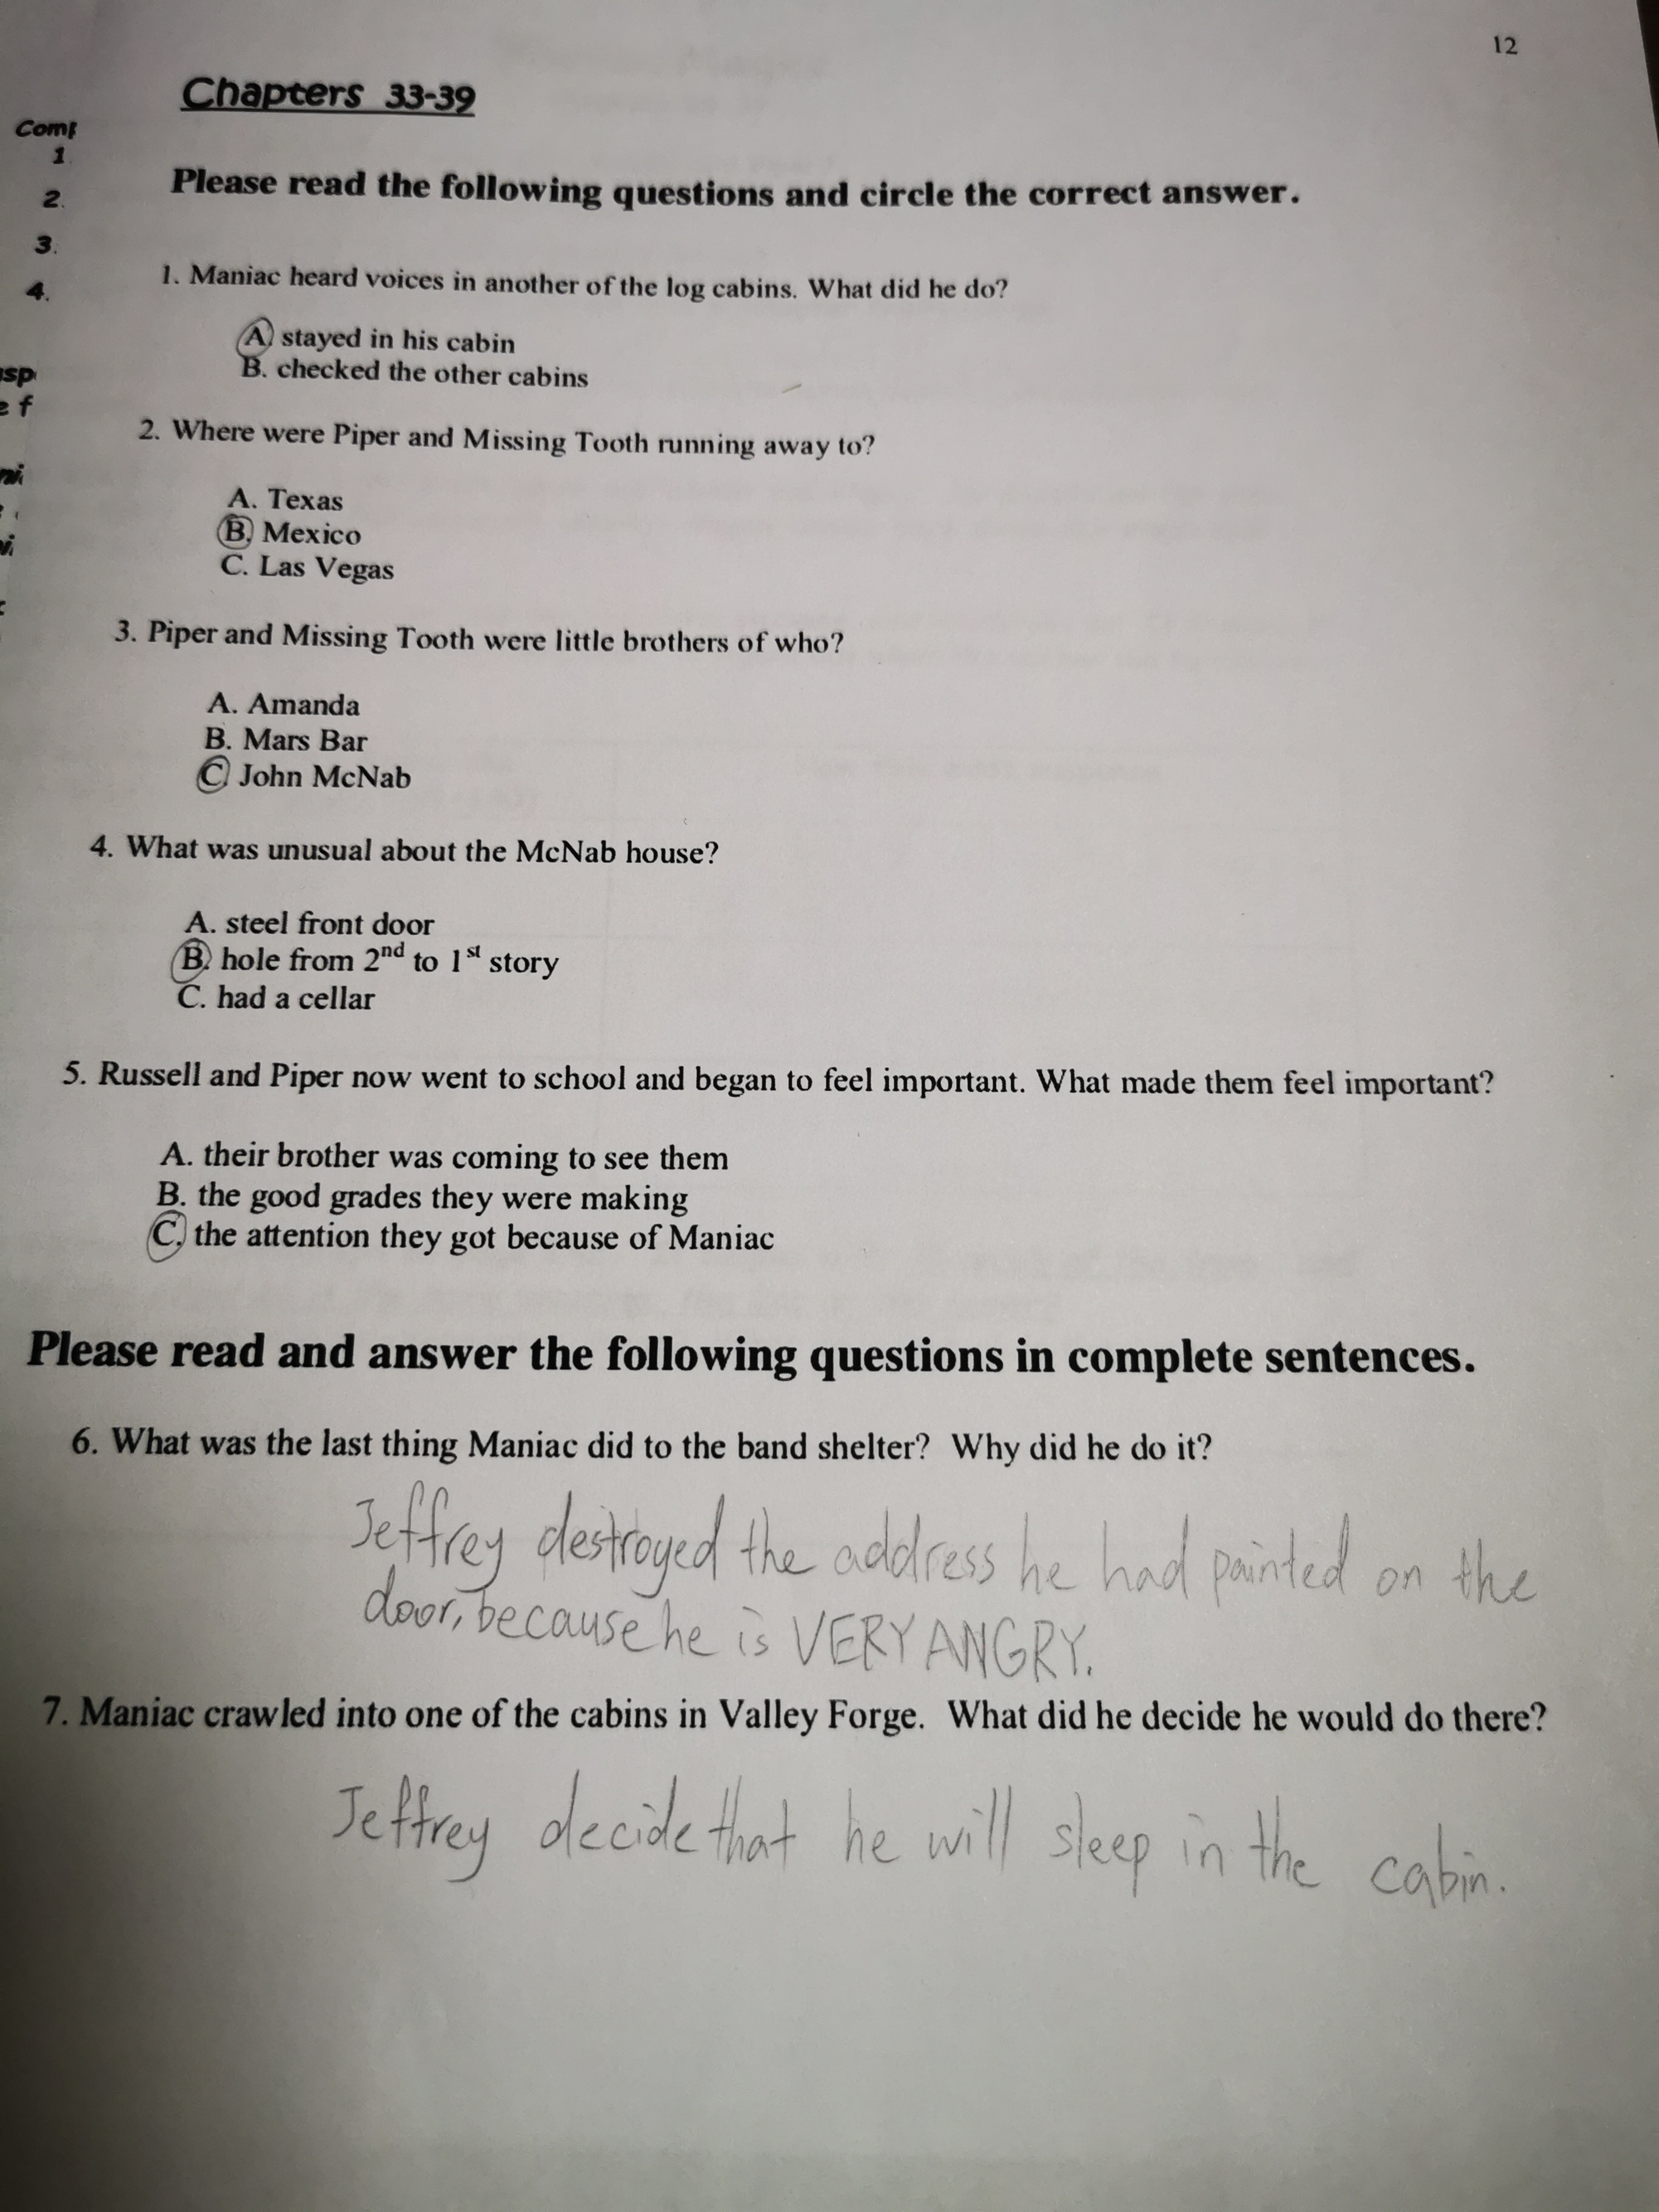 12
Chapters 33-39
Please read the following questions and circle the correct answer.
1. Maniac heard voices in another of the log cabins. What did he do?
A. stayed in his cabin
B. checked the other cabins
2. Where were Piper and Missing Tooth running away to?
A. Texas
B. Mexico
C. Las Vegas
3. Piper and Missing Tooth were little brothers of who?
A. Amanda
B. Mars Bar
C. John McNab
4. What was unusual about the McNab house?
A. steel front door
B. hole from 2nd to 1st story
C. had a cellar
5. Russell and Piper now went to school and began to feel important. What made them feel important?
A. their brother was coming to see them
B. the good grades they were making
C. the attention they got because of Maniac
Please read and answer the following questions in complete sentences.
6. What was the last thing Maniac did to the band shelter? Why did he do it?
Jeffrey destroyed the address he had painted on the
door, because he is VERY ANGRY.
7. Maniac crawled into one of the cabins in Valley Forge. What did he decide he would do there?
Jeffrey decide that he will sleep in the cabin.
1.
2.
3.
4.